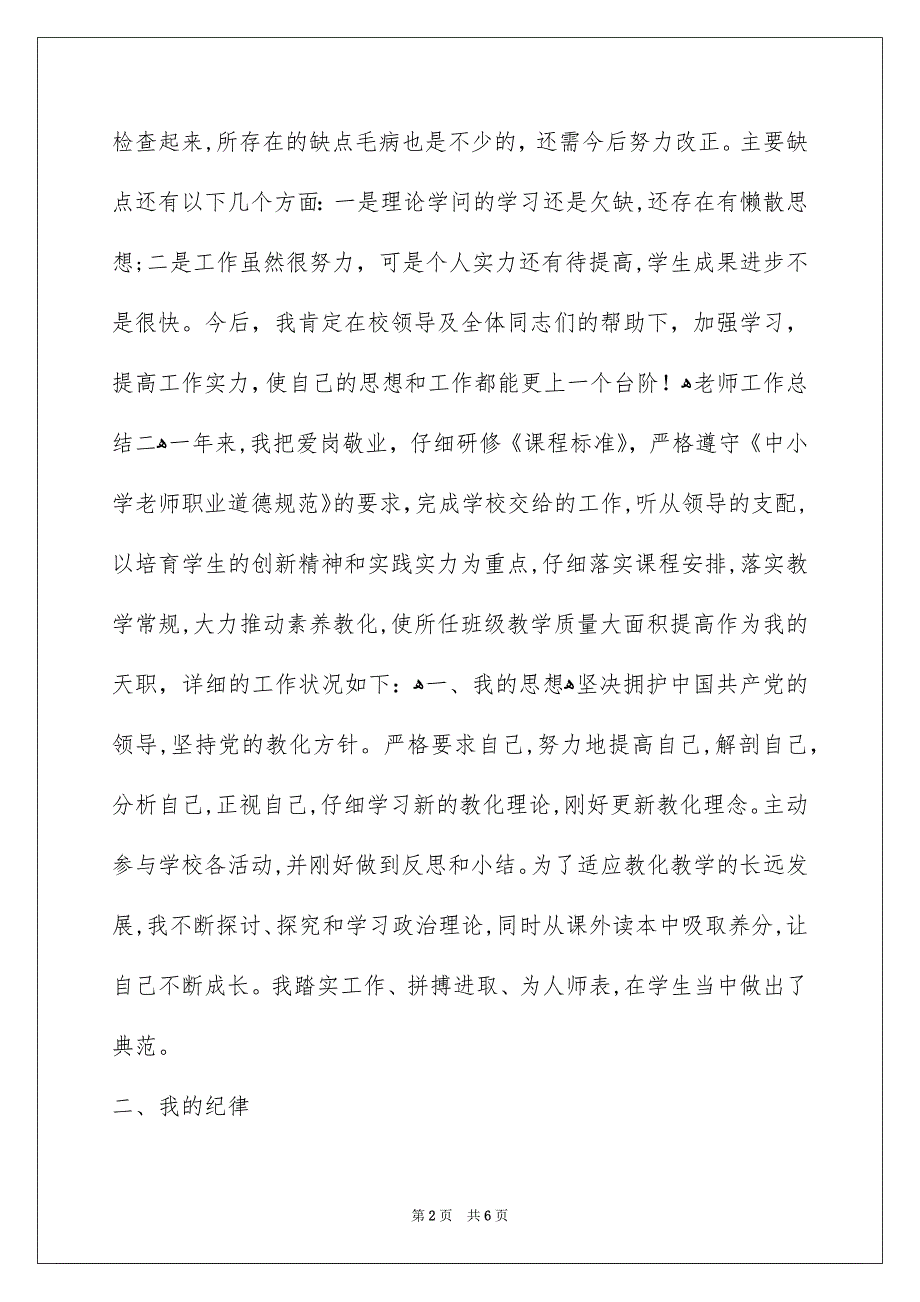 检查起来,所存在的缺点毛病也是不少的，还需今后努力改正。主要缺
点还有以下几个方面：一是理论学问的学习还是欠缺,还存在有懒散思
想;二是工作虽然很努力，可是个人实力还有待提高,学生成果进步不
是很快。今后，我肯定在校领导及全体同志们的帮助下，加强学习，
提高工作实力,使自己的思想和工作都能更上一个台阶！ﻫ老师工作总
结二ﻫ一年来,我把爱岗敬业，仔细研修《课程标准》，严格遵守《中小
学老师职业道德规范》的要求,完成学校交给的工作,听从领导的支配,
以培育学生的创新精神和实践实力为重点,仔细落实课程安排,落实教
学常规,大力推动素养教化,使所任班级教学质量大面积提高作为我的
天职，详细的工作状况如下：ﻫ一、我的思想ﻫ坚决拥护中国共产党的
领导,坚持党的教化方针。严格要求自己,努力地提高自己,解剖自己,
分析自己,正视自己,仔细学习新的教化理论,刚好更新教化理念。主动
参与学校各活动,并刚好做到反思和小结。为了适应教化教学的长远发
展,我不断探讨、探究和学习政治理论,同时从课外读本中吸取养分,让
自己不断成长。我踏实工作、拼搏进取、为人师表,在学生当中做出了
典范。
二、我的纪律
第 2 页 共 6 页